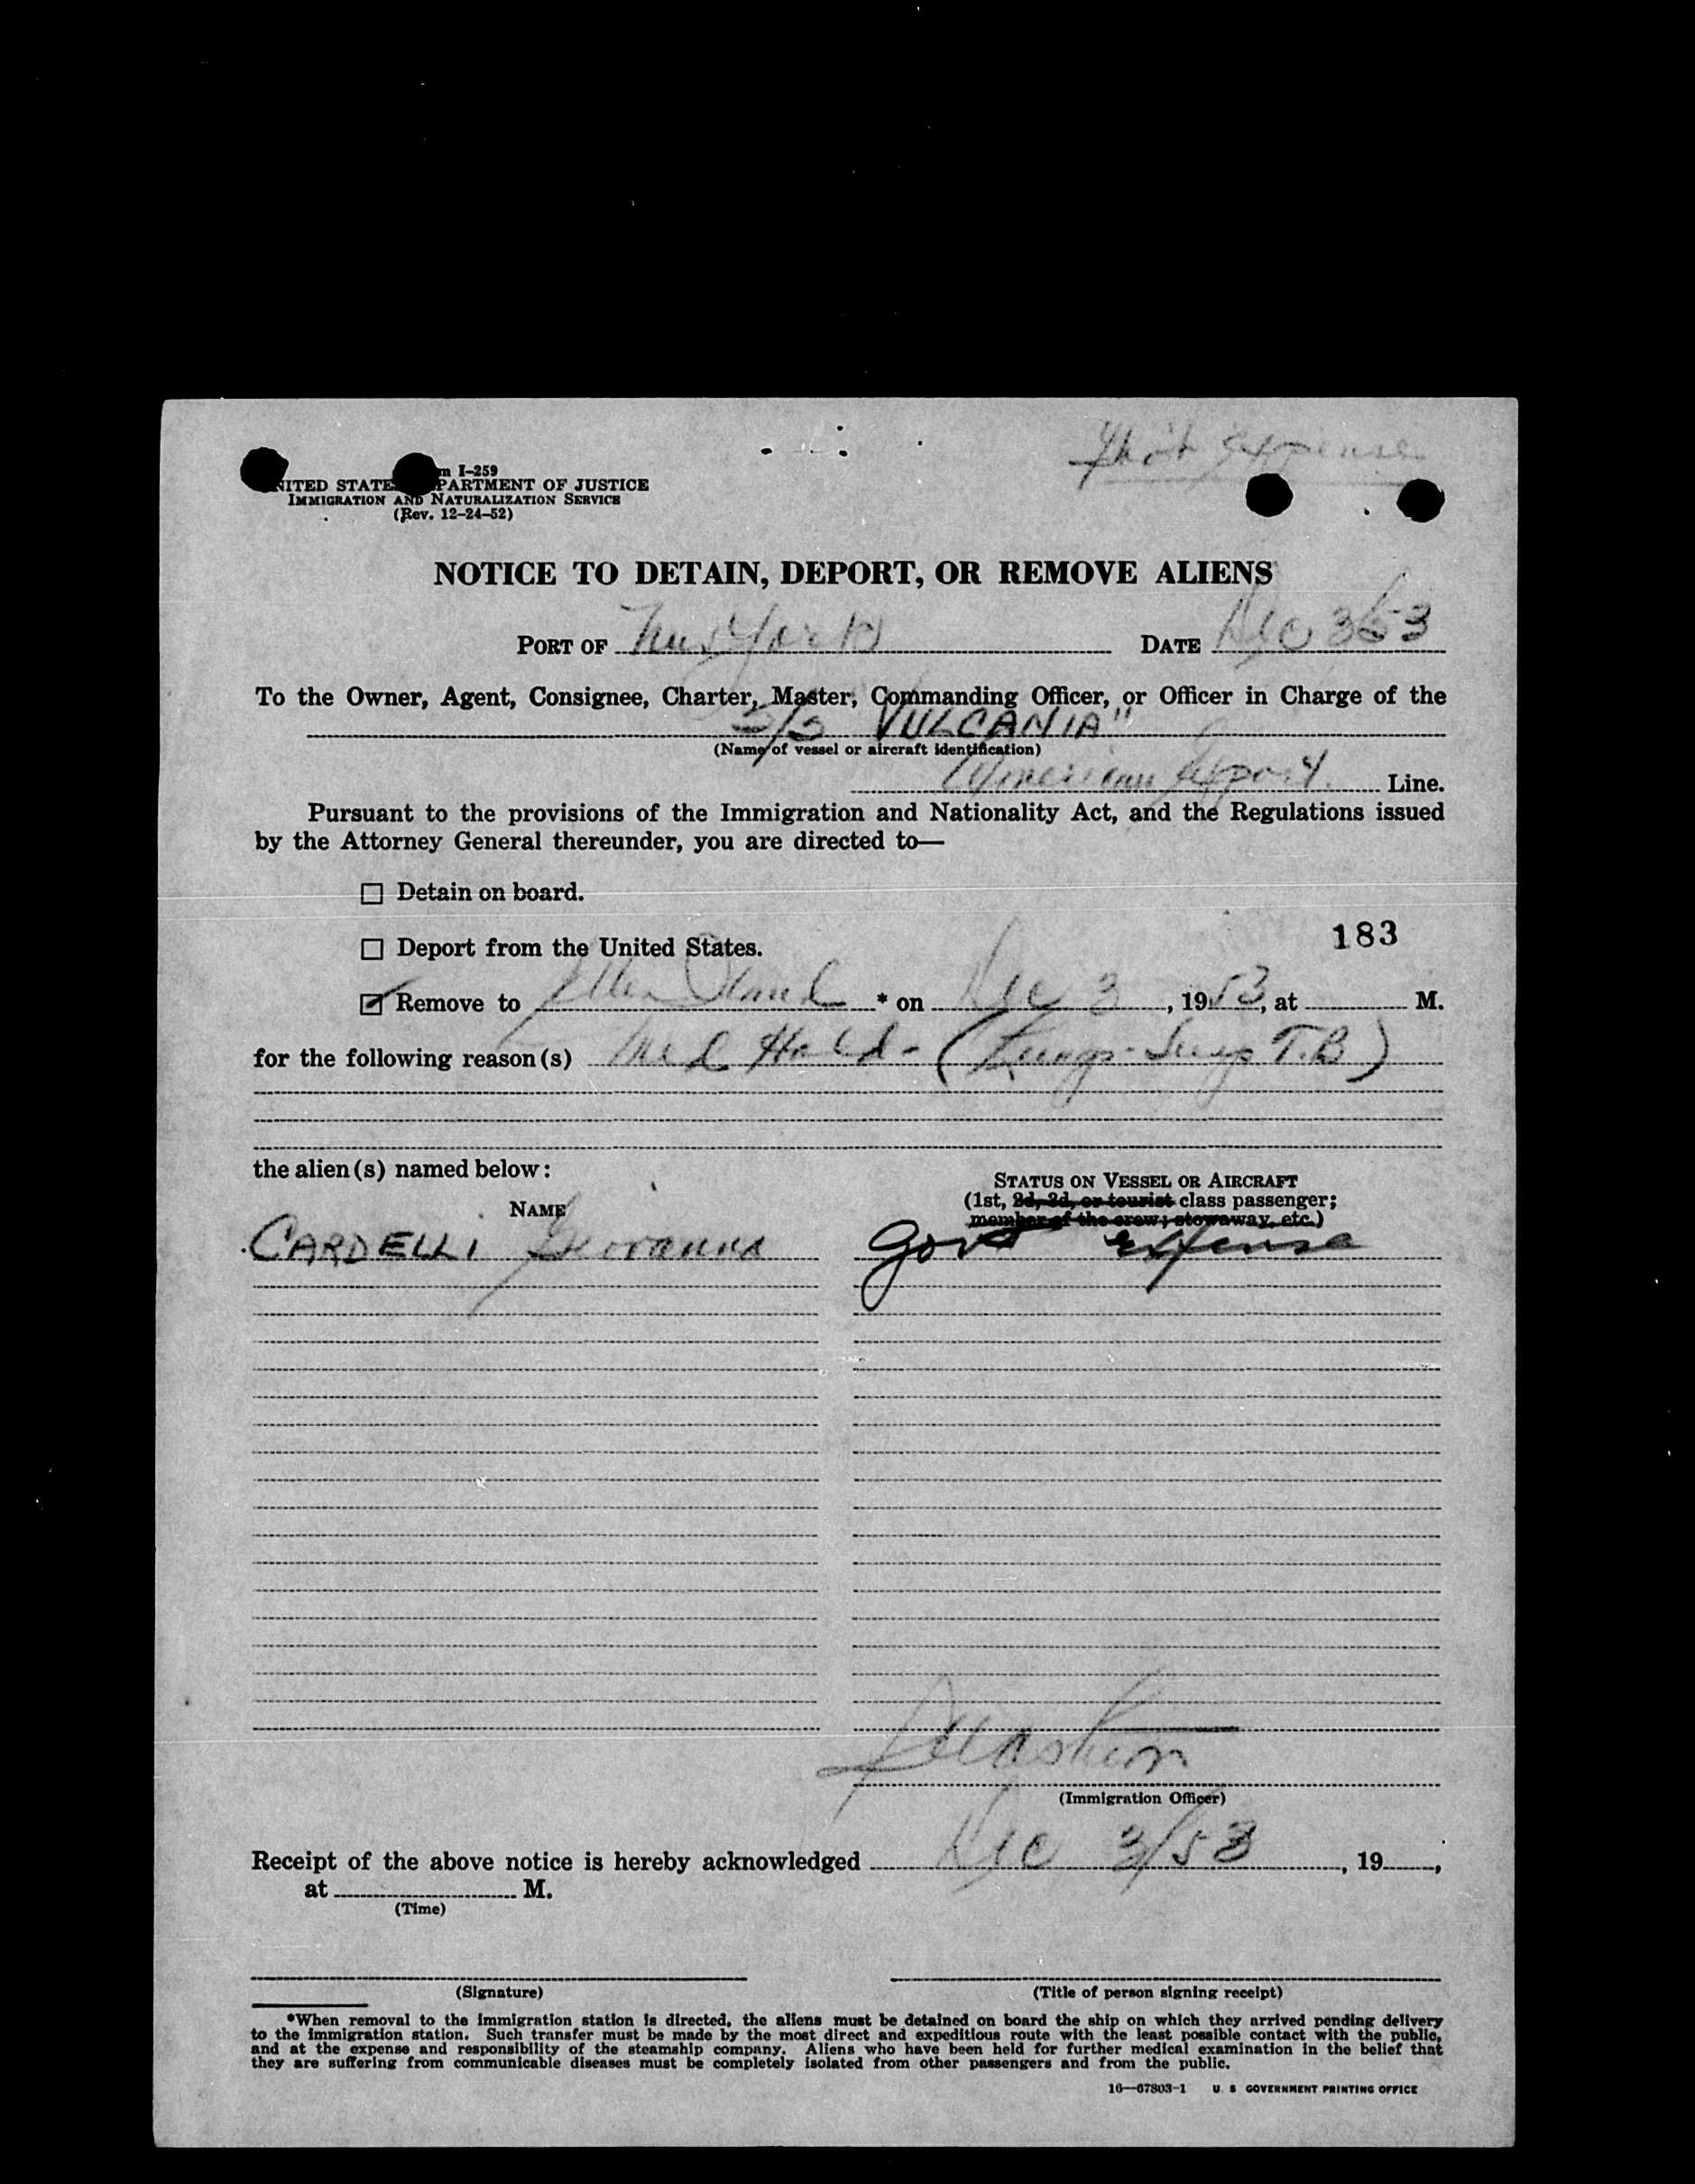 Form I-259
UNITED STATES DEPARTMENT OF JUSTICE
IMMIGRATION AND NATURALIZATION SERVICE
(Rev. 12-24-52)
Expense
NOTICE TO DETAIN, DEPORT, OR REMOVE ALIENS
PORT OF New York DATE Dec 3/53
To the Owner, Agent, Consignee, Charter, Master, Commanding Officer, or Officer in Charge of the
S/S VULCANIA"
(Name of vessel or aircraft identification)
American Export Line.
Pursuant to the provisions of the Immigration and Nationality Act, and the Regulations issued
by the Attorney General thereunder, you are directed to—
☐ Detain on board.
☐ Deport from the United States.
183
☑ Remove to Ellis Island * on Dec 3, 1953, at M.
for the following reason(s) Med Hold - (Lungs - Susp T.B)
the alien(s) named below:
NAME
STATUS ON VESSEL OR AIRCRAFT
(1st, 2d, 3d, or tourist class passenger;
member of the crew; stowaway, etc.)
CARDELLI Giovanna Govt Expense
(Immigration Officer)
Receipt of the above notice is hereby acknowledged Dec 3/53, 19 ,
at M.
(Time)
(Signature) (Title of person signing receipt)
*When removal to the immigration station is directed, the aliens must be detained on board the ship on which they arrived pending delivery
to the immigration station. Such transfer must be made by the most direct and expeditious route with the least possible contact with the public,
and at the expense and responsibility of the steamship company. Aliens who have been held for further medical examination in the belief that
they are suffering from communicable diseases must be completely isolated from other passengers and from the public.
16—67803-1 U. S. GOVERNMENT PRINTING OFFICE